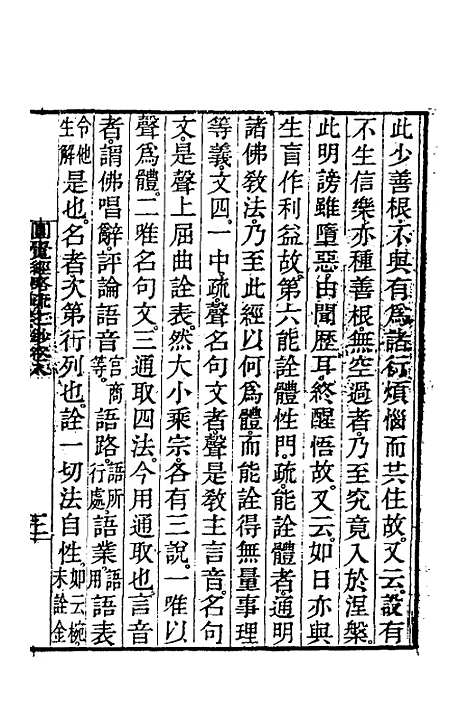 此少善根不與有為諸行煩惱而共住故又云設有
不生信樂亦種善根無空過者乃至究竟入於涅槃
此明謗雖墮惡由聞歷耳終醒悟故又云如日亦與
生盲作利益故第六能詮體性門疏能詮體者通明
諸佛教法乃至此經以何為體而能詮得無量事理
等義文四一中疏聲名句文者聲是教主言音名句
文是聲上屈曲詮表然大小乘宗各有三說一唯以
聲為體二唯名句文三通取四法今用通取也言音
者謂佛唱辭評論語音宮商等語路語所行處語業語用語表
令他生解是也名者次第行列也詮一切法自性如云椀未詮金
圓覺經略疏之鈔卷六